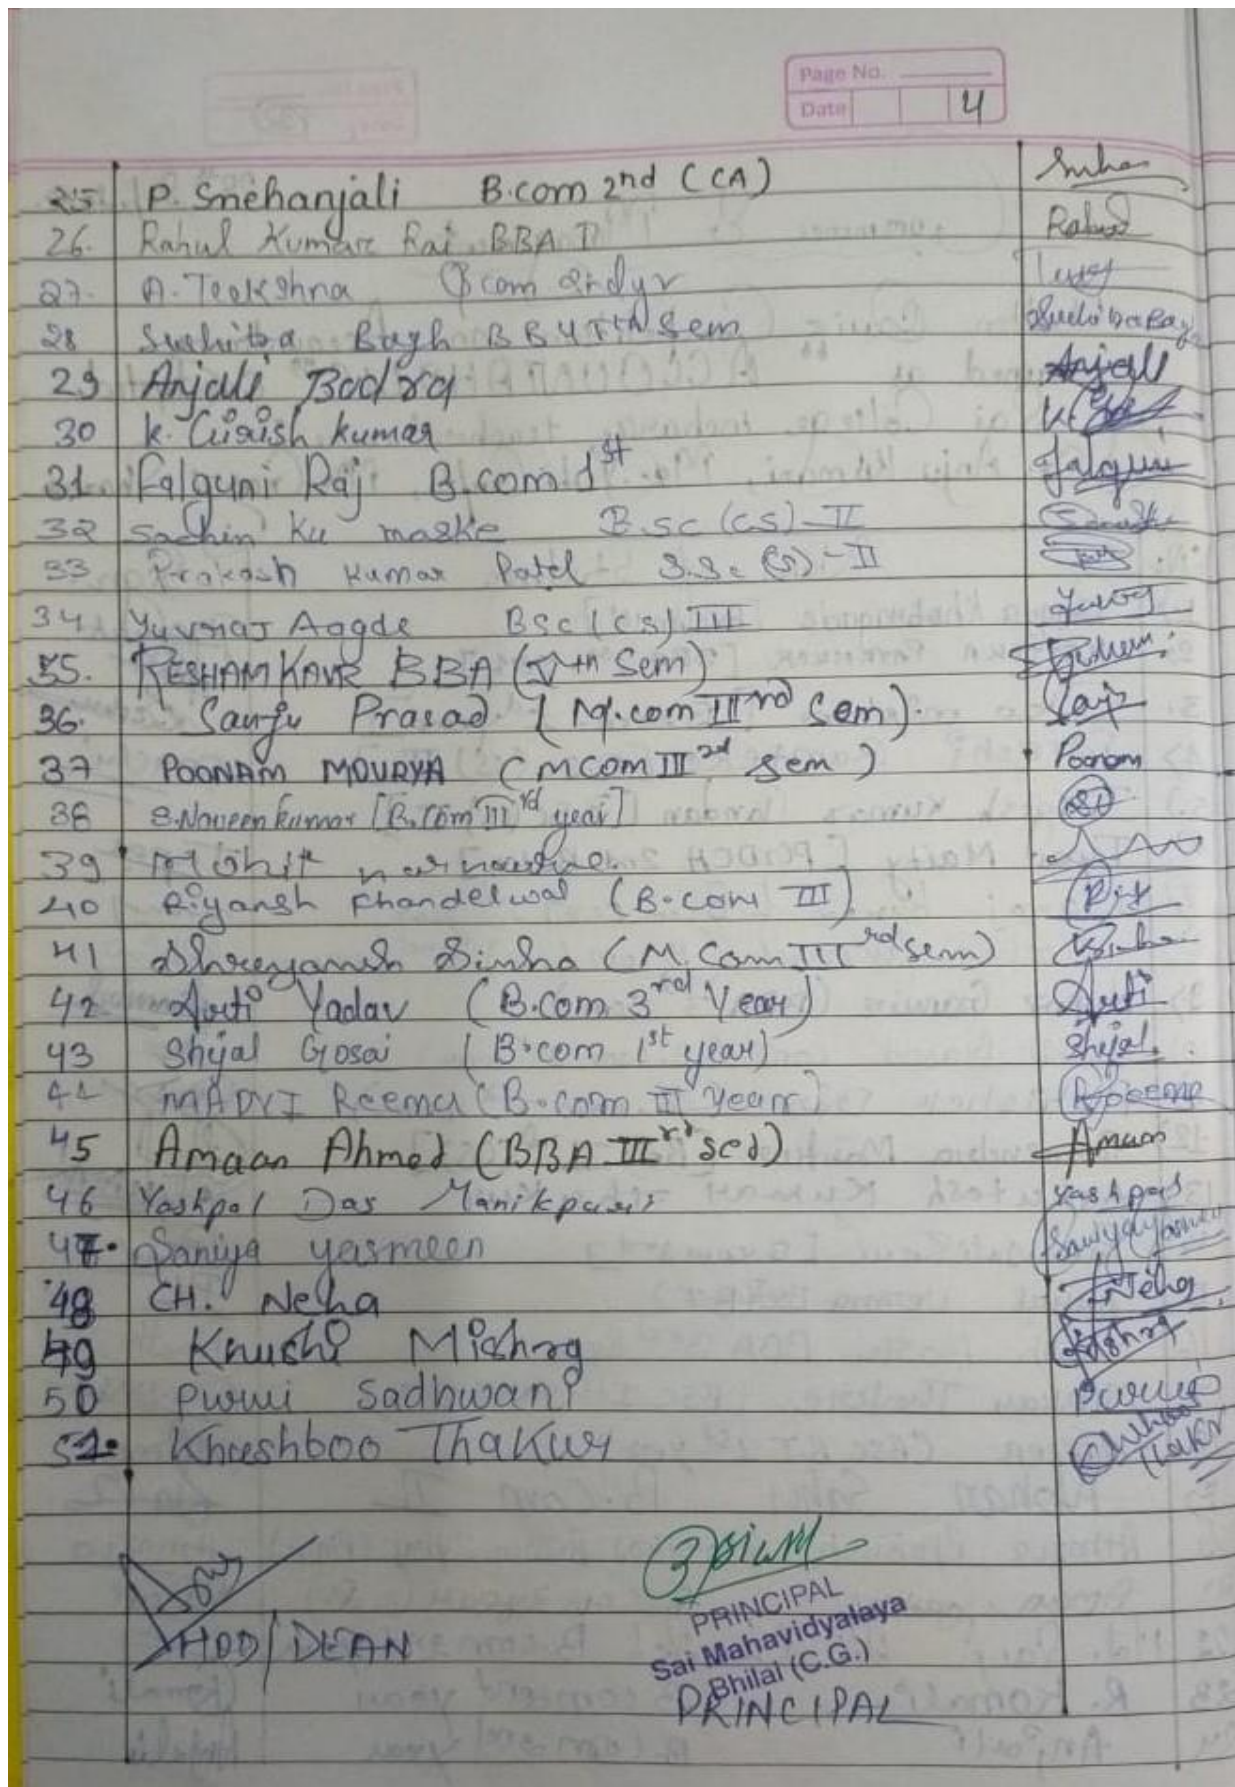 Page No.
Date 4
25 P. Snehanjali B.com 2nd (CA) Sneha
26. Rahul Kumar Rai BBA I Rahul
27. A. Teekshna B.com 2nd yr
28 Suchitra Bagh BB 4th Sem
29 Anjali Badra Anjali
30 K. Girish kumar
31 Falguni Raj B.com 1st Falguni
32 Sachin Ku maske B.sc (CS)-II
33 Prakash Kumar Patel B.Sc (CS)-II
34 Yuvraj Aagde BSc (CS) III Yuvraj
35. RESHAM KAUR BBA (Vth Sem) Resham
36. Sanju Prasad (M.com IIIrd Sem).
37 POONAM MOURYA (MCOM IIIrd Sem) Poonam
38 S.Naveen kumar [B.Com IIIrd year]
39 Mohit
40 Riyansh Khandelwal (B.com III) Riy
41 Shreyansh Sinha (M.Com IIIrd sem) Sinha
42 Arti Yadav (B.Com 3rd Year) Arti
43 Shijal Gosai (B.com 1st year) Shijal
44 MADVI Reema (B.com III year) Reema
45 Amaan Ahmed (BBA IIIrd Sed) Amaan
46 Yashpal Das Manikpuri Yashpal
47. Saniya yasmeen Saniya Yasmeen
48 CH. Neha Neha
49 Khushi Mishra Mishra
50 Purvi Sadhwani Purvi
51. Khushboo Thakur Khushboo Thakur
HOD/DEAN
PRINCIPAL
Sai Mahavidyalaya
Bhilai (C.G.)
PRINCIPAL